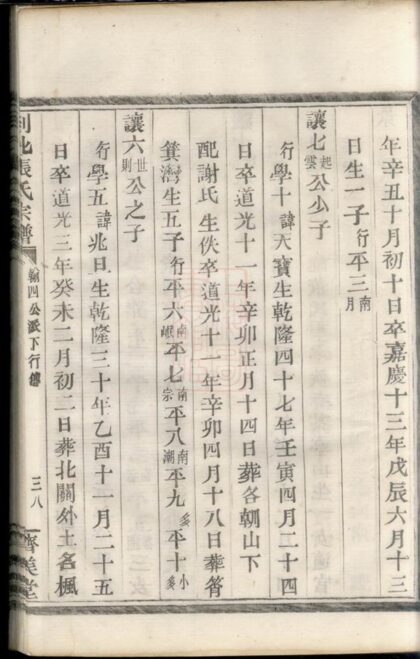 年辛丑十月初十日卒嘉慶十三年戊辰六月十三
日生一子行平三南月
讓七起雲公少子
行學十諱大寶生乾隆四十七年壬寅四月二十四
日卒道光十一年辛卯正月十四日葬各朝山下
配謝氏生佚卒道光十一年辛卯四月十八日葬筲
箕灣生五子行平六南岷平七南宗平八南潮平九多平十小多
讓六世則公之子
行學五諱兆旦生乾隆三十年乙酉十一月二十五
日卒道光三年癸未二月初二日葬北關外土名楓
北張氏宗譜
翰四公派下行傳
三八
齊美堂